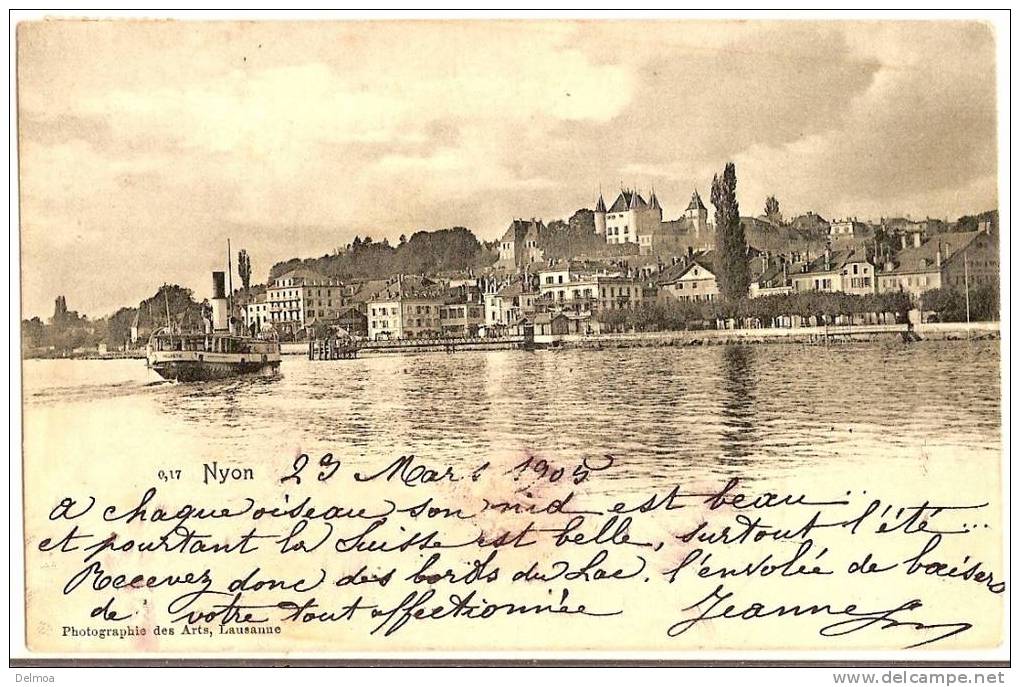 0,17 Nyon 23 Mars 1905
A chaque oiseau son nid est beau :
et pourtant la Suisse est belle, surtout l'été...
Recevez donc des bords du Lac, l'envolée de baisers
de votre tout affectionnée Jeanne
Photographie des Arts, Lausanne
Delmoa
www.delcampe.net